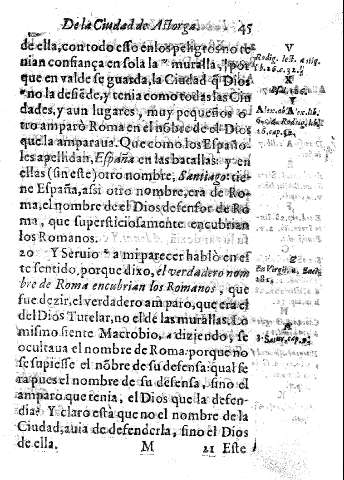 De la Ciudad de Astorga. 45
de ella, con todo esso en los peligros no te
nian confiança en sola la muralla, por
que en valde se guarda, la Ciudad q̃ Dios
no la defiẽde, y tenia como todas las Ciu
dades, y aun lugares, muy pequeños o
tro amparò Roma en el nõbre de el Dios
que la amparaua. Que como los Españo
les apellidan, España en las batallas: y en
ellas (sin este) otro nombre, Santiago: tie
ne España, asi otro nombre, era de Ro-
ma, el nombre de el Dios defensor de Ro
ma, que supersticiosamente encubrian
los Romanos.
20 Y Seruio a mi parecer hablò en es
te sentido, porque dixo, el verdadero nom
bre de Roma encubrian los Romanos, que
fue dezir, el verdadero amparo, que era el
del Dios Tutelar, no el de las murallas. Lo
mismo siente Macrobio, a diziendo, se
ocultaua el nombre de Roma: porque no
se supiesse el nõbre de su defensa: qual se
ra pues el nombre de su defensa, sino el
amparo que tenia, el Dios que la defen-
dia? Y claro està que no el nombre de la
Ciudad, auia de defenderla, sino el Dios
de ella. M 21 Este
V
X
Y
Z
A